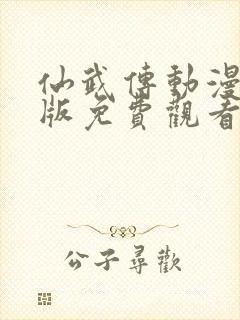 仙武傳動漫
版免費觀看
公子尋歡